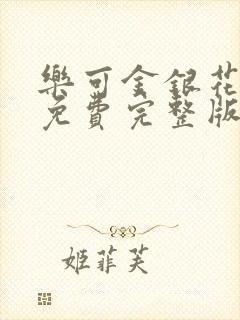 樂可金銀花
免費完整版
姬菲芙